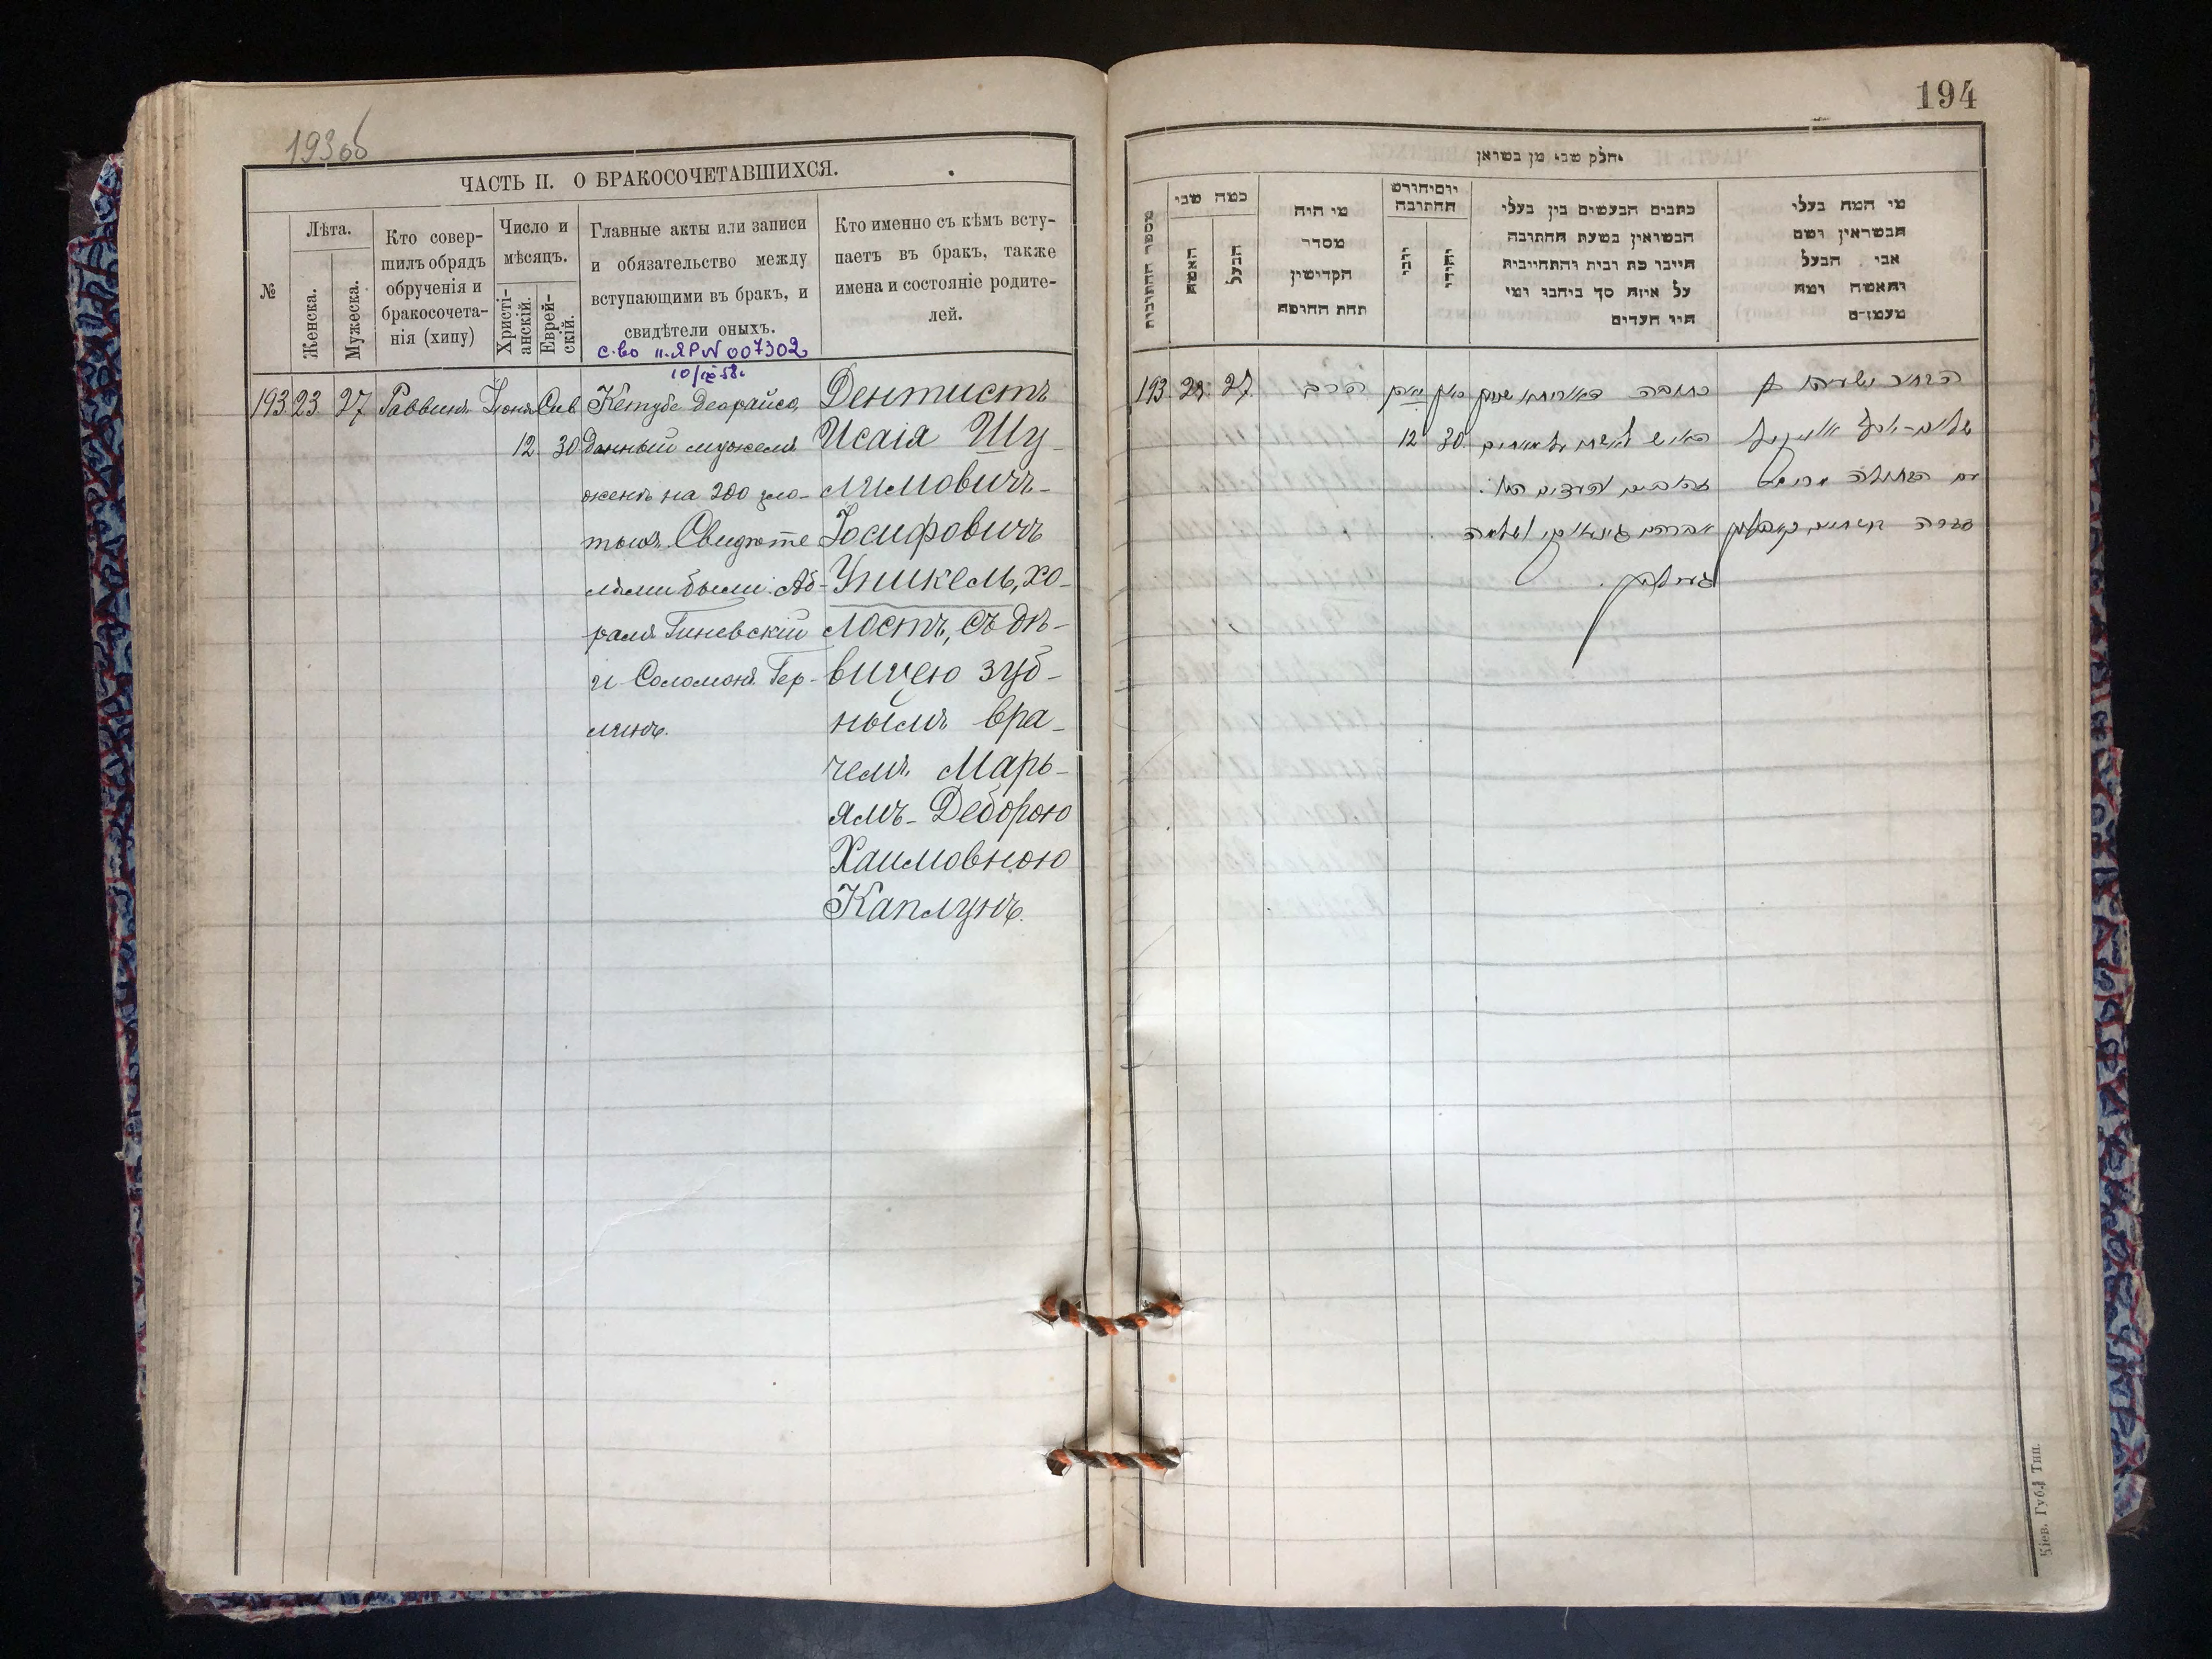 193 об
ЧАСТЬ II. О БРАКОСОЧЕТАВШИХСЯ.
№
Лѣта.
Женска.
Мужеска.
Кто совер-
шилъ обрядъ
обрученія и
бракосочета-
нія (хипу)
Число и
мѣсяцъ.
Христі-
анскій.
Еврей-
скій.
Главные акты или записи
и обязательство между
вступающими въ бракъ, и
свидѣтели оныхъ.
Кто именно съ кѣмъ всту-
паетъ въ бракъ, также
имена и состояніе родите-
лей.
с-во II-ЯР № 007302
193. 23. 27 Раввинъ Іюня Сив
12. 30.
Кетубе Деорайсо,
данный мужемъ
женѣ на 200 зло-
тыхъ. Свидѣте
лями были: Аб-
рамъ Гиневскій
и Соломонъ Гер-
Дентистъ
Исаія Шу-
лимовичъ-
Іосифовичъ
Уникель, хо-
лостъ, съ дѣ-
вицею зуб-
нымъ вра-
чемъ Марь-
ямъ-Деборою
Хаимовною
Каплунъ.
194
חלק שני מן נשואין
מספר החתונות
כמה שני
האשה
הבעל
מי היה
מסדר
הקדישין
תחת החופה
יום וחודש
החתונה
נוצרי
יהודי
כתבים הנעשים בין בעלי
הנשואין בשעת החתונה
חייבו כת ובית והתחייבות
על איזה סך ביחבו ומי
היו העדים
מי המה בעלי
הנשואין ושם
אבי הבעל
והאשה ומה
מעמדם
193. 23. 27. הרב
12 30.
כתובה דאורייתא
הבחור ישעיהו
עם הבתולה מרים
דבורה
אברהם
Кіев. Губ. Тип.